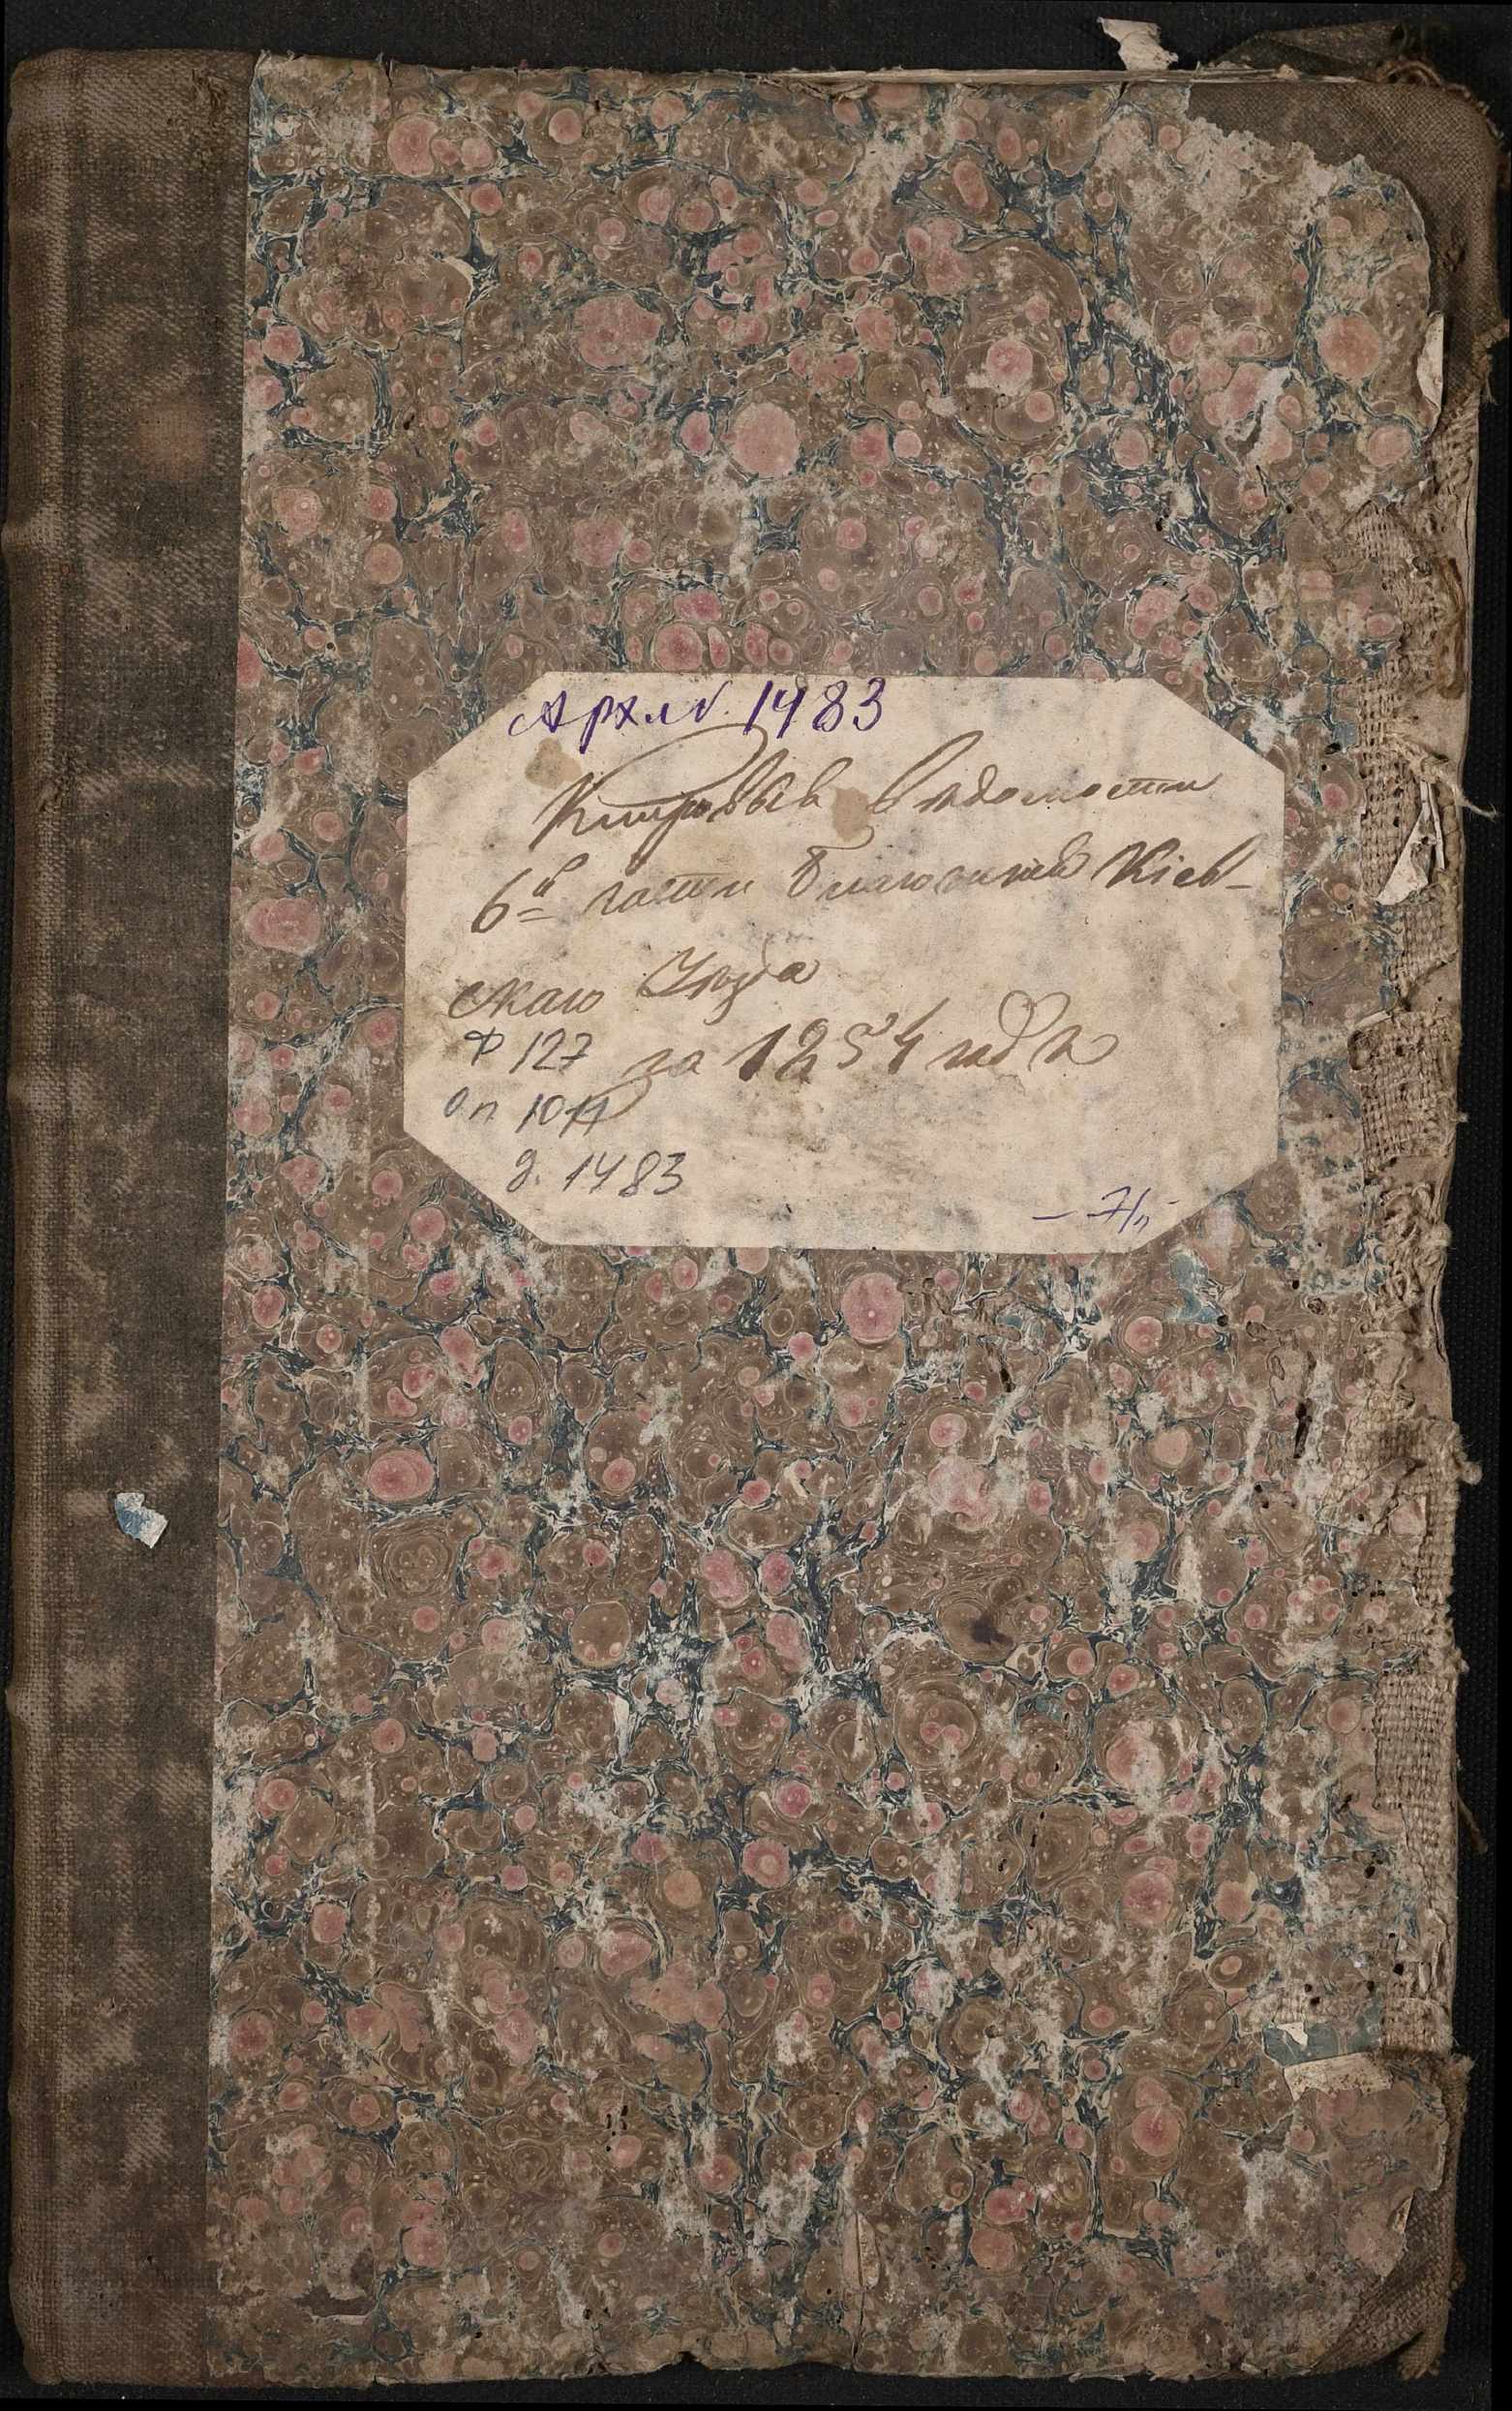 Арх.№. 1483
Клировыя Ведомости
6й части Благочинія Кіев-
скаго Уезда
Ф 127 за 1854 годъ
Оп 1011
д. 1483